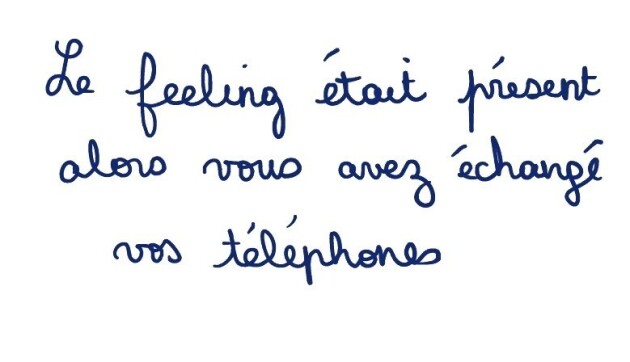 Le feeling était présent
alors vous avez échangé
vos téléphones